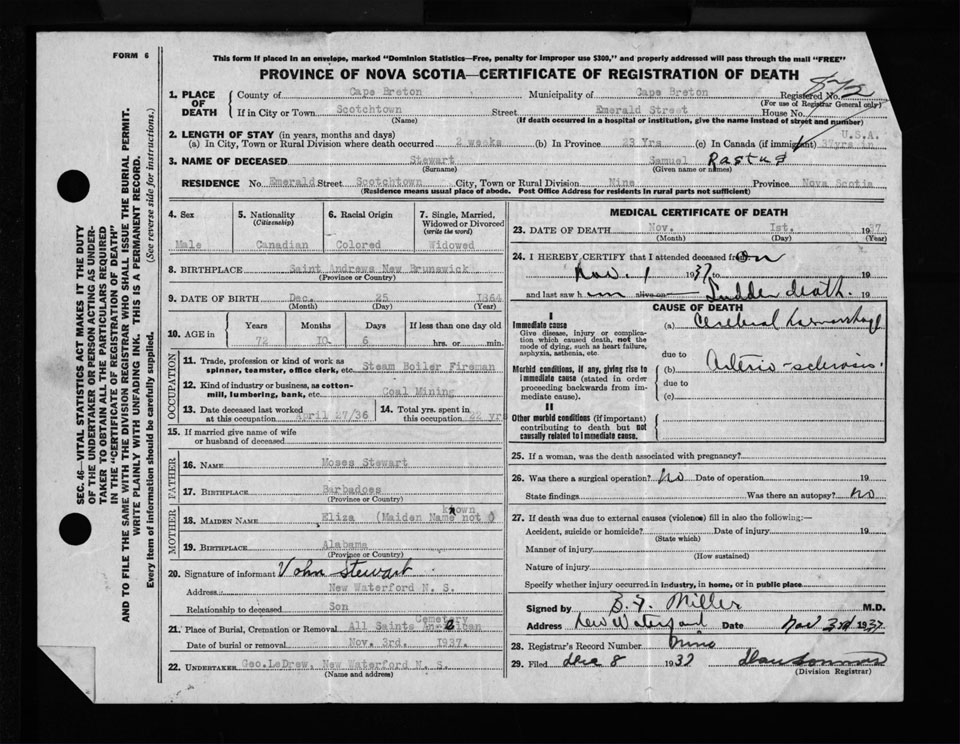 FORM 6
This form if placed in an envelope, marked "Dominion Statistics—Free, penalty for improper use $300," and properly addressed will pass through the mail "FREE"
PROVINCE OF NOVA SCOTIA—CERTIFICATE OF REGISTRATION OF DEATH
SEC. 46—VITAL STATISTICS ACT MAKES IT THE DUTY
OF THE UNDERTAKER OR PERSON ACTING AS UNDER-
TAKER TO OBTAIN ALL THE PARTICULARS REQUIRED
IN THE "CERTIFICATE OF REGISTRATION OF DEATH"
AND TO FILE THE SAME WITH THE DIVISION REGISTRAR WHO SHALL ISSUE THE BURIAL PERMIT.
WRITE PLAINLY WITH UNFADING INK. THIS IS A PERMANENT RECORD.
Every item of information should be carefully supplied. (See reverse side for instructions.)
1. PLACE OF DEATH
County of Cape Breton Municipality of Cape Breton Registered No.
(For use of Registrar General only)
If in City or Town Scotchtown Street Emerald Street House No.
(Name) (If death occurred in a hospital or institution, give the name instead of street and number)
2. LENGTH OF STAY (in years, months and days) U.S.A.
(a) In City, Town or Rural Division where death occurred 2 weeks (b) In Province 23 Yrs (c) In Canada (if immigrant) 37yrs in
3. NAME OF DECEASED Stewart Samuel Rastus
(Surname) (Given name or names)
RESIDENCE No. Emerald Street Scotchtown City, Town or Rural Division Nine Province Nova Scotia
(Residence means usual place of abode. Post Office Address for residents in rural parts not sufficient)
4. Sex 5. Nationality (Citizenship) 6. Racial Origin 7. Single, Married, Widowed or Divorced (write the word)
Male Canadian Colored Widowed
8. BIRTHPLACE Saint Andrews New Brunswick
(Province or Country)
9. DATE OF BIRTH Dec. 25 1864
(Month) (Day) (Year)
10. AGE in Years Months Days If less than one day old
72 10 6 hrs. or min.
OCCUPATION
11. Trade, profession or kind of work as
spinner, teamster, office clerk, etc. Steam Boiler Fireman
12. Kind of industry or business, as cotton-
mill, lumbering, bank, etc. Coal Mining
13. Date deceased last worked 14. Total yrs. spent in
at this occupation April 27/36 this occupation 22 yrs
15. If married give name of wife
or husband of deceased
FATHER
16. NAME Moses Stewart
17. BIRTHPLACE Barbadoes
(Province or Country)
MOTHER
known
18. MAIDEN NAME Eliza (Maiden Name not )
19. BIRTHPLACE Alabama
(Province or Country)
20. Signature of informant John Stewart
Address New Waterford N. S.
Relationship to deceased Son
Cemetery
21. Place of Burial, Cremation or Removal All Saints Anglican
Date of burial or removal Nov. 3rd. 1937.
22. UNDERTAKER Geo.LeDrew, New Waterford N. S.
(Name and address)
MEDICAL CERTIFICATE OF DEATH
23. DATE OF DEATH Nov. 1st. 1937
(Month) (Day) (Year)
24. I HEREBY CERTIFY that I attended deceased from On
Nov. 1 1937 to 19
and last saw h im alive on Sudden death. 19
CAUSE OF DEATH
I
Immediate cause (a) Cerebral hemorrhage
Give disease, injury or complica-
tion which caused death, not the
mode of dying, such as heart failure,
asphyxia, asthenia, etc.
due to
Morbid conditions, if any, giving rise to
immediate cause (stated in order
proceeding backwards from im-
mediate cause).
(b) Arterio-sclerosis.
due to
(c)
II
Other morbid conditions (if important)
contributing to death but not
causally related to immediate cause.
25. If a woman, was the death associated with pregnancy?
26. Was there a surgical operation? No Date of operation 19
State findings Was there an autopsy? No
27. If death was due to external causes (violence) fill in also the following:—
Accident, suicide or homicide? Date of injury 19
(State which)
Manner of injury
(How sustained)
Nature of injury
Specify whether injury occurred in industry, in home, or in public place
Signed by Miller M.D.
Address New Waterford Date Nov 3rd 1937
28. Registrar's Record Number Nine
29. Filed Dec 8 1937
(Division Registrar)